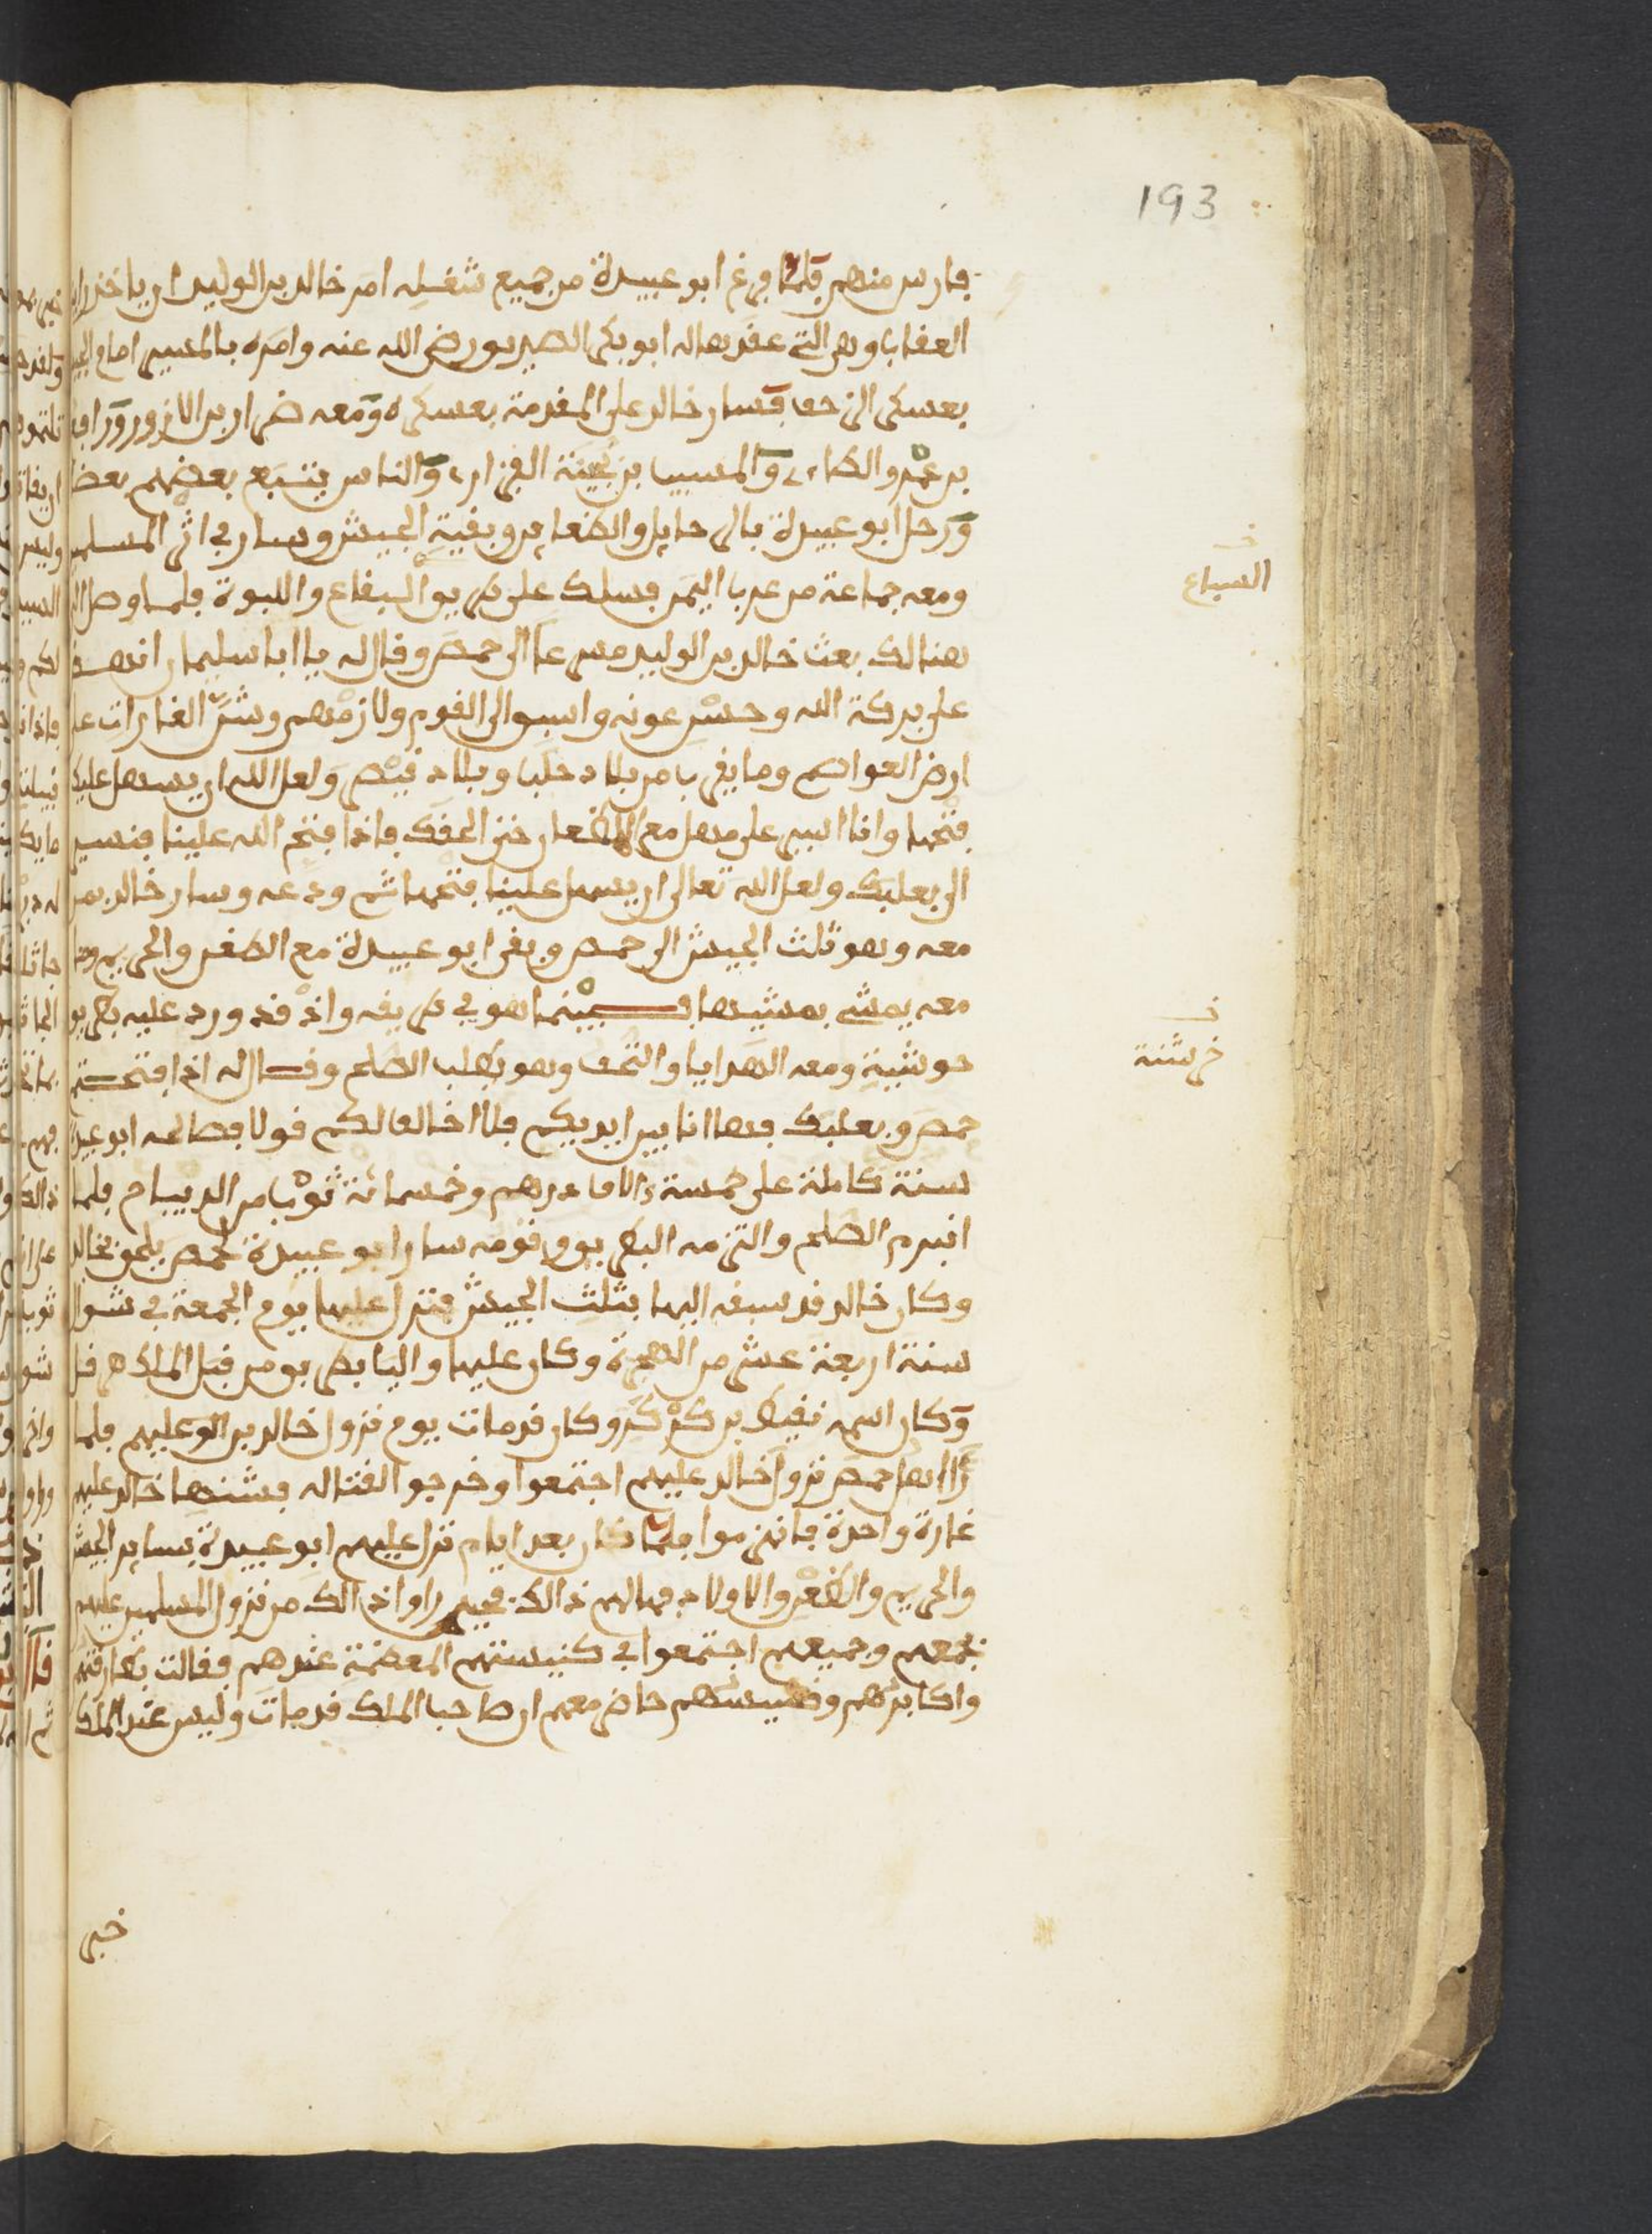 193
فارس منهم فلما فرغ ابو عبيدة من جميع شغله امر خالد بن الوليد ان ياخذ راية
العقاب وهي التي عقدها له ابو بكر الصديق رضي الله عنه وامره بالمسير امام الجيش
بعسكر الزحف فسار خالد على المقدمة بعسكره ومعه ضرار بن الازور ورافع
بن عمرو الطاءي والمسيب بن نجيبة الفزاري والناس يتبع بعضهم بعضا
ورحل ابو عبيدة بالرحايل والضعاين وبقية الجيش وسار في اثر المسلمين
ومعه جماعة من عرب اليمن فسلك على طريق البقاع واللبوة فلما وصل الى
السباع
هنالك بعث خالد بن الوليد مسرعا الى حمص وقال له يا ابا سليمان انهض
على بركة الله وحسن عونه واسبق الى القوم ولازمهم وشن الغارات على
ارض العواصم وما يقرب من بلاد حلب وبلاد قيصر ولعل الله ان يسهل عليك
فتحها وانا اسير على مهل مع فاذا فتح الله علينا فنسير
الى بعلبك ولعل الله تعالى ان يسهل علينا فتحها ثم ودعه وسار خالد بمن
معه وهو ثلث الجيش الى حمص وبقي ابو عبيدة مع الضعن والحريم ومن
معه يمشي بمشيها فبينما هو في طريقه واذ قد ورد عليه بطريق
خ
خرشنة
حوشبة ومعه الهدايا والتحف وهو يطلب الصلح وقال له اذا فتحتم
حمص وبعلبك فها انا بين ايديكم فلا اخالف لكم قولا فصالحه ابو عبيدة
سنة كاملة على خمسة ءالاف درهم وخمسمائة ثوب من الديباج فلما
انبرم الصلح والتزمه البطريق وقومه سار ابو عبيدة لحمص يلحق بخالد
وكان خالد قد سبقه اليها بثلث الجيش فنزل عليها يوم الجمعة في شوال
سنة اربعة عشر من الهجرة وكان عليها واليا بطريق من قبل الملك هرقل
وكان اسمه نقيطا بن كركر وكان قد مات يوم نزول خالد بن الو عليهم فلما
راا اهل حمص نزول خالد عليهم اجتمعوا وخرجوا لقتاله فشنها خالد عليهم
غارة واحدة فانهزموا فلما كان بعد ايام نزل عليهم ابو عبيدة بسايـر الجيش
والحريم والضعن والاولاد فهالهم ذالك فحين راوا ذالك من نزول المسلمين عليهم
بجمعهم وجميعهم اجتمعوا في كنيستهم المعظمة عندهم فقالت بطارقتهم
واكابرهم وقسيسهم حاضر معهم ان صاحب الملك قد مات وليس عند الملك
خبر